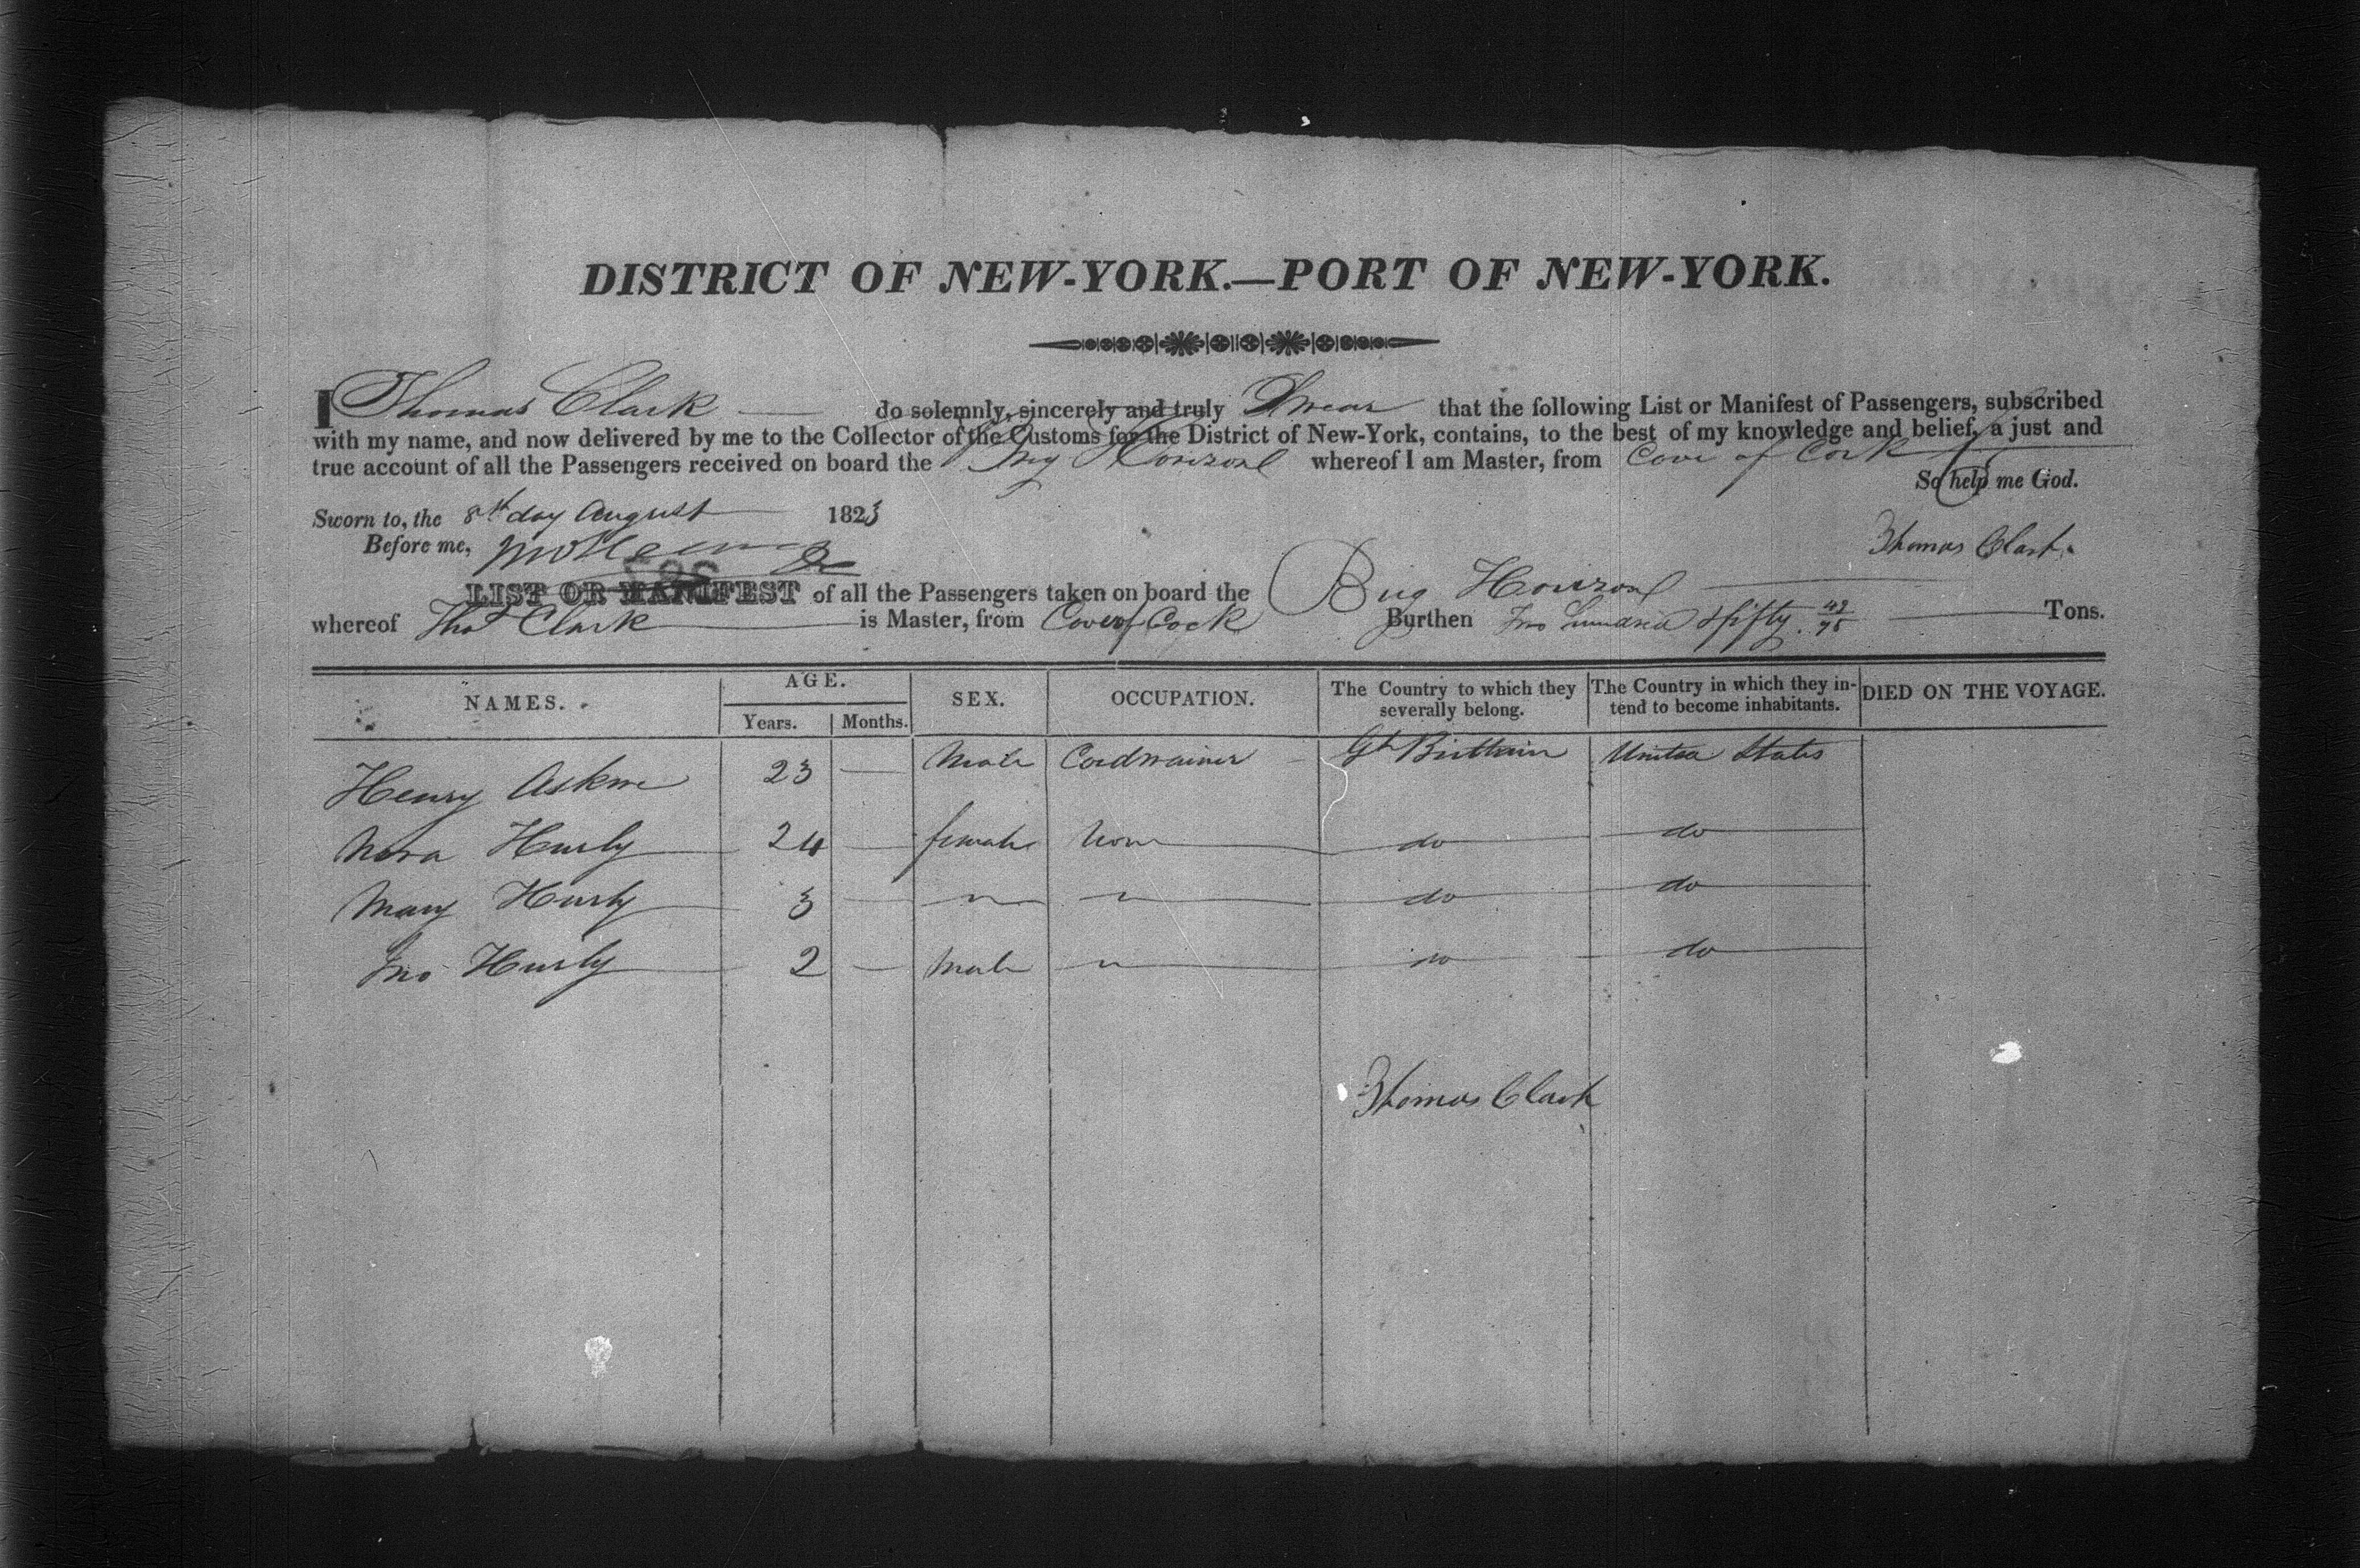 DISTRICT OF NEW-YORK.—PORT OF NEW-YORK.
I Thomas Clark do solemnly, sincerely and truly Swear that the following List or Manifest of Passengers, subscribed
with my name, and now delivered by me to the Collector of the Customs for the District of New-York, contains, to the best of my knowledge and belief, a just and
true account of all the Passengers received on board the Brig whereof I am Master, from Cove of Cork
So help me God.
Sworn to, the 8th day August 1823
Before me,
Thomas Clark
LIST OR MANIFEST of all the Passengers taken on board the Brig
whereof Thos Clark is Master, from Cove of Cork Burthen Two hundred & fifty 49/95 Tons.
NAMES. AGE. SEX. OCCUPATION. The Country to which they severally belong. The Country in which they intend to become inhabitants. DIED ON THE VOYAGE.
Years. Months.
Henry 23 — Male Cordwainer Gt Brittain United States
Nora Hurly 24 — female None do do
Mary Hurly 3 — " " do do
Jno Hurly 2 — Male " do do
Thomas Clark